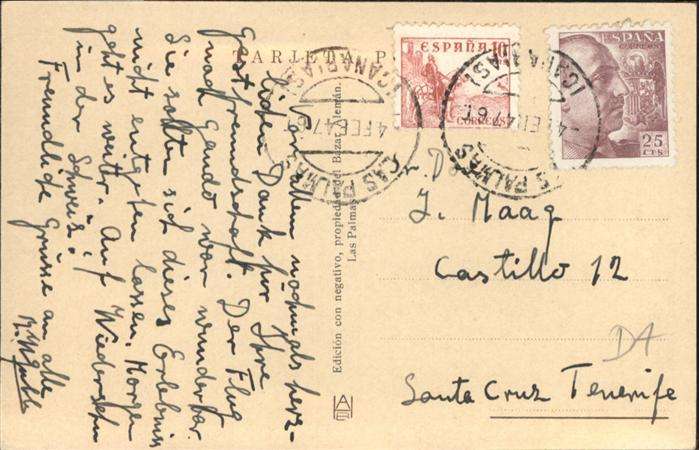 TARJETA P
Vor allem nochmals herz-
lichen Dank für Ihre
Gastfreundschaft. Der Flug
nach Gando war wunderbar.
Sie sollten sich dieses Erlebniss
nicht entgehen lassen. Morgen
geht es weiter. Auf Wiedersehn
in der Schweiz!
Freundliche Grüsse an alle
Edición con negativo, propiedad del Bazar Alemán.
Las Palmas
ESPAÑA 10
CORREOS
ESPAÑA
CORREOS
25
CTS
LAS PALMAS
(CANARIAS)
4 FEB 47.6
LAS PALMAS
(CANARIAS)
Sr. D.
J. Maag
Castillo 12
D4
Santa Cruz Tenerife